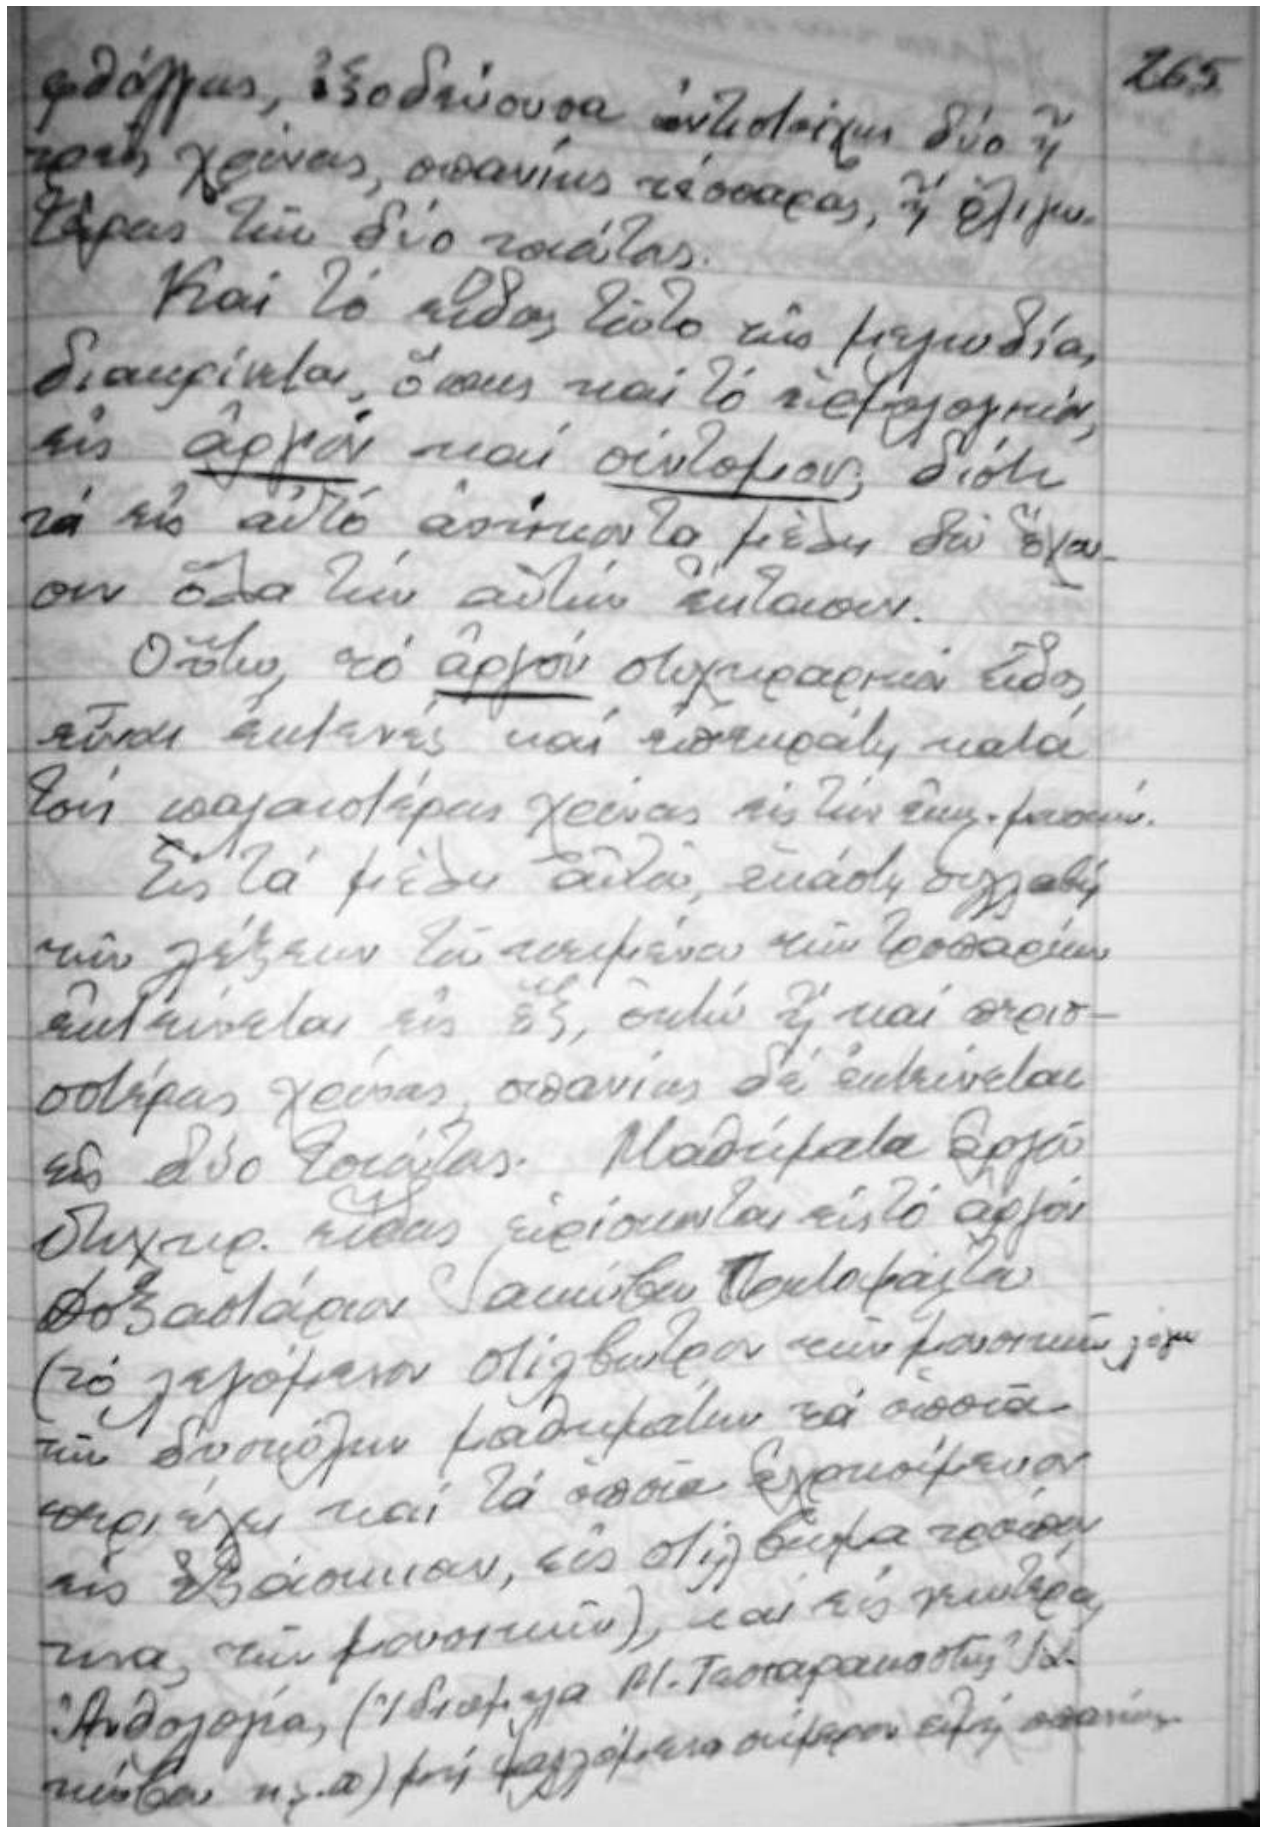 265
φθόγγους, ἐξοδεύουσα ἀντιστοίχως δύο ἤ
τρεῖς χρόνους, σπανίως τέσσαρας, ἤ ὀλιγω-
τέρους τῶν δύο
Καί τό εἶδος τοῦτο τῆς μελωδίας
διακρίνεται, ὅπως καί τό εἱρμολογικόν,
εἰς ἀργόν καί σύντομον, διότι
τά εἰς αὐτό ἀνήκοντα μέλη δέν ἔχου-
σιν ὅλα τήν αὐτήν ἔκτασιν.
Οὕτω, τό ἀργόν στιχηραρικόν εἶδος
εἶναι ἐκτενές καί ἐπεκράτει κατά
τούς παλαιοτέρους χρόνους εἰς τήν ἐκκλ. μουσικήν.
Εἰς τά μέλη αὐτά, ἑκάστη συλλαβή
τῶν λέξεων τοῦ κειμένου τῶν τροπαρίων
ἐκτείνεται εἰς ἕξ, ὀκτώ ἤ καί περισ-
σοτέρους χρόνους, σπανίως δέ ἐκτείνεται
εἰς δύο τοιούτους. Μαθήματα ἀργοῦ
στιχηρ. εἴδους εὑρίσκονται εἰς τό ἀργόν
Δοξαστάριον Ἰακώβου Πρωτοψάλτου
(τό λεγόμενον στίλβωτρον τῶν μουσικῶν, λόγω
τῶν δυσκόλων μαθημάτων τά ὁποῖα
περιέχει καί τά ὁποῖα ἐχρησίμευον
εἰς ἐξάσκησιν, εἰς στίλβωμα τρόπον
τινα, τῶν μουσικῶν), καί εἰς νεωτέρας
Ἀνθολογίας, (Ἰδιόμελα Μ. Τεσσαρακοστῆς Ἰα-
κώβου κ.λ.π) μή ψαλλόμενα σήμερον εἰμή σπανίως